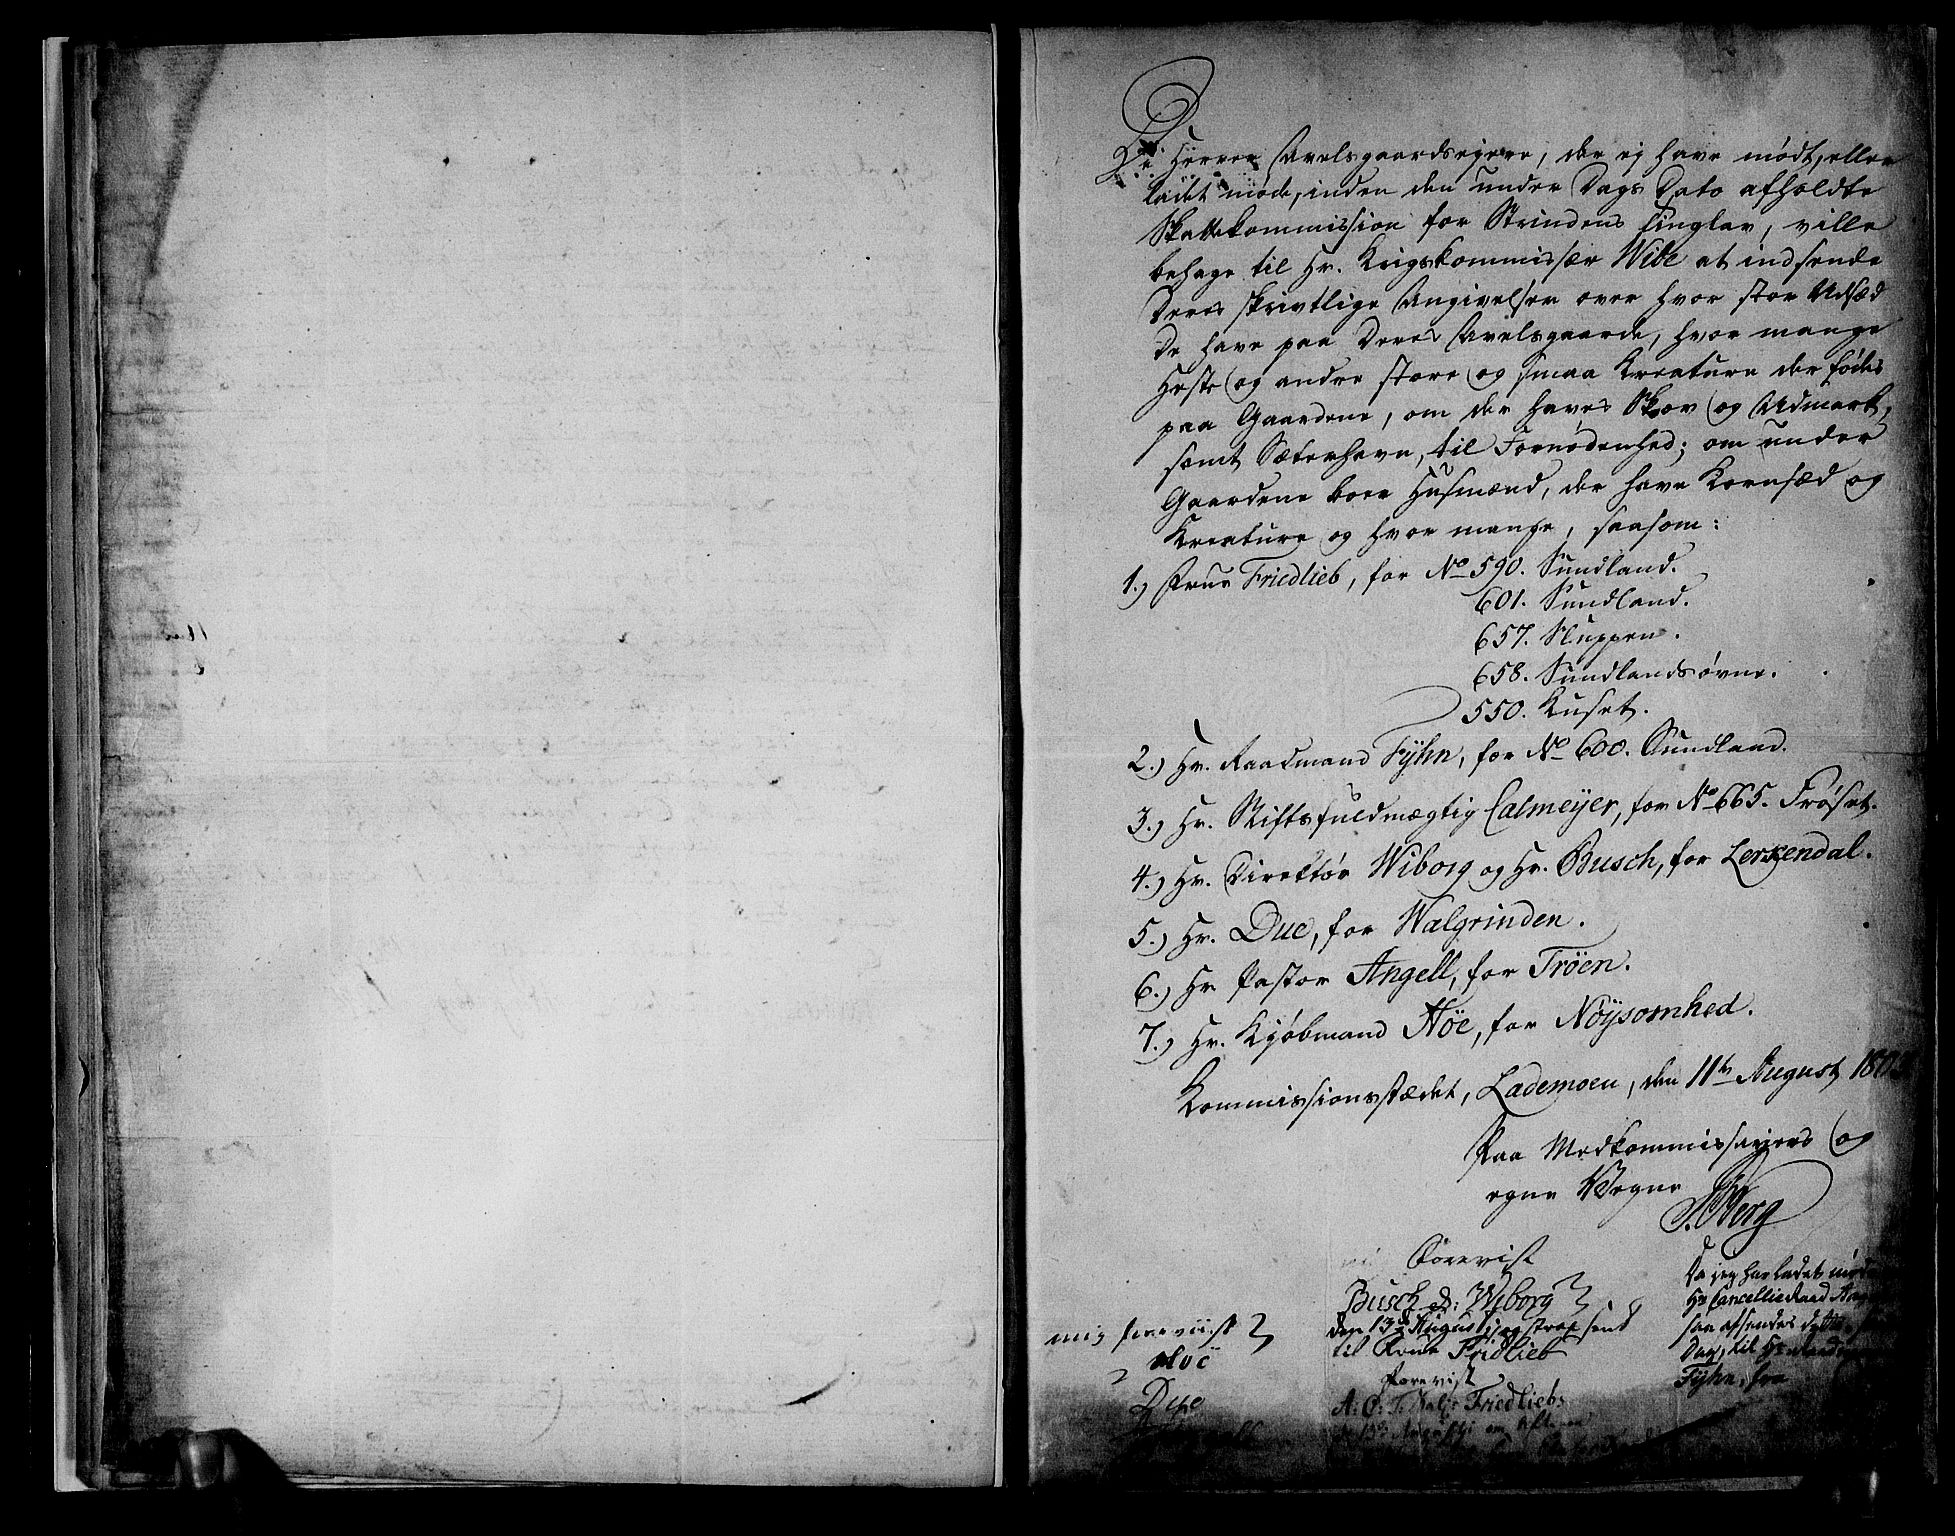 De Herrer Avelsgaardsejere, der ej have mødt, eller
ladet møde, inden den under Dags Dato afholdte
Skattekommission for Strindens Tinglav, ville
behage til Hr. Krigskommissær Wibe at indsende
Deres skrivtlige Angivelser over hvor stor Udsæd
De have paa Deres Avelsgaarde, hvor mange
Heste og andre store og smaa Kreature der fødes
paa Gaardene, om der haves Skov og Udmark,
samt Sæterhavn, til Fornødenhed; om under
Gaardene boer Husmænd, der have Kornsæd og
Kreature og hvor mange, saasom:
1.) Frue Friedlieb, for No 590. Sundland.
601. Sundland.
657. Sluppen.
658. Sundlandsøvne.
550. Kuset.
2.) Hr. Raadmand Fÿhn, for No 600. Sundland.
3.) Hr. Stiftsfuldmægtig Calmeÿer, for No 665. Frøset.
4.) Hr. Direktør Wiborg og Hr. Busch, for Lerkendal.
5.) Hr. Due, for Walgrinden.
6.) Hr Pastor Angell, for Tröen.
7.) Hr. Kjøbmand Höe, for Nöÿsomhed.
Kommissionsstædet, Lademoen, den 11te August 1803
Paa Medkommissairers og
egne Vegne
Berg
Forevist
Busch & Wiborg
den 13de August og strax sent
til Frue Fridlieb
Forevist
A: C: T: Friedliebs
mig foreviist
Höe
Due
Da jeg har ladet møde
Hr Cancellieraad
saa afsendes dette
Dag, til Hr Raadmand
Fÿhn, fra